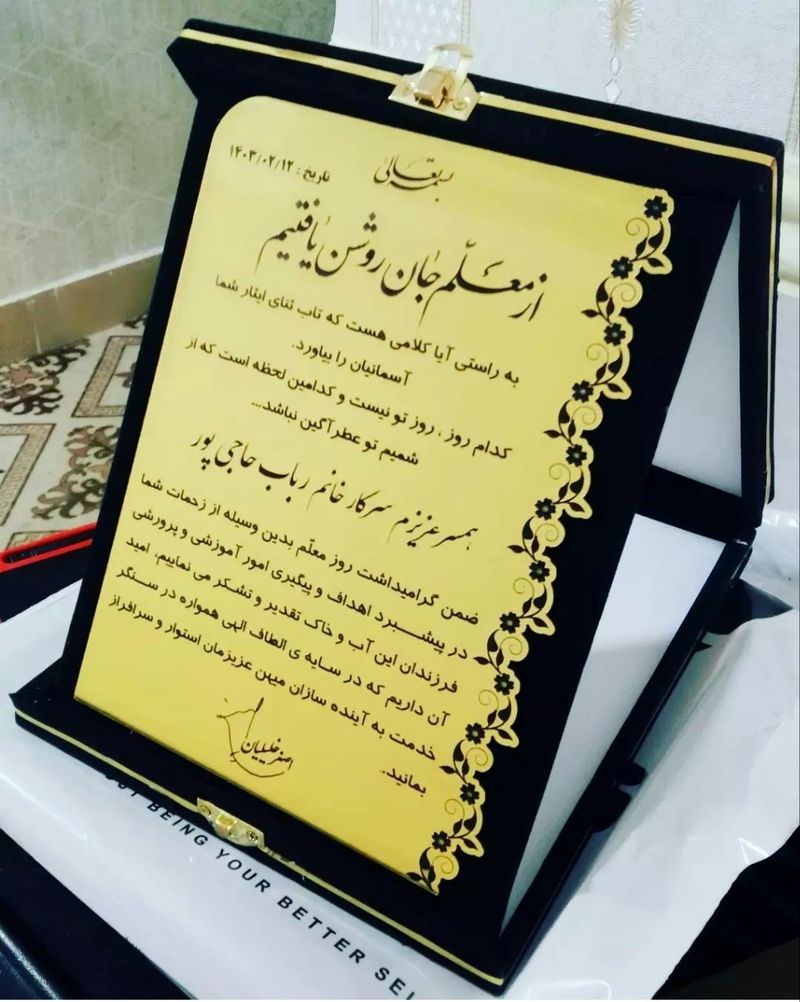 بسمه تعالی
تاریخ : ۱۴۰۳/۰۲/۱۲
از معلّم جان روشن یافتیم
به راستی آیا کلامی هست که تاب ثنای ایثار شما
آسمانیان را بیاورد.
کدام روز ، روز تو نیست و کدامین لحظه است که از
شمیم تو عطرآگین نباشد...
همسر عزیزم سرکار خانم رباب حاجی پور
ضمن گرامیداشت روز معلّم بدین وسیله از زحمات شما
در پیشبرد اهداف و پیگیری امور آموزشی و پرورشی
فرزندان این آب و خاک تقدیر و تشکر می نماییم، امید
آن داریم که در سایه ی الطاف الهی همواره در سنگر
خدمت به آینده سازان میهن عزیزمان استوار و سرافراز
بمانید.
اصغر خلیلیان
BEING YOUR BETTER SEL